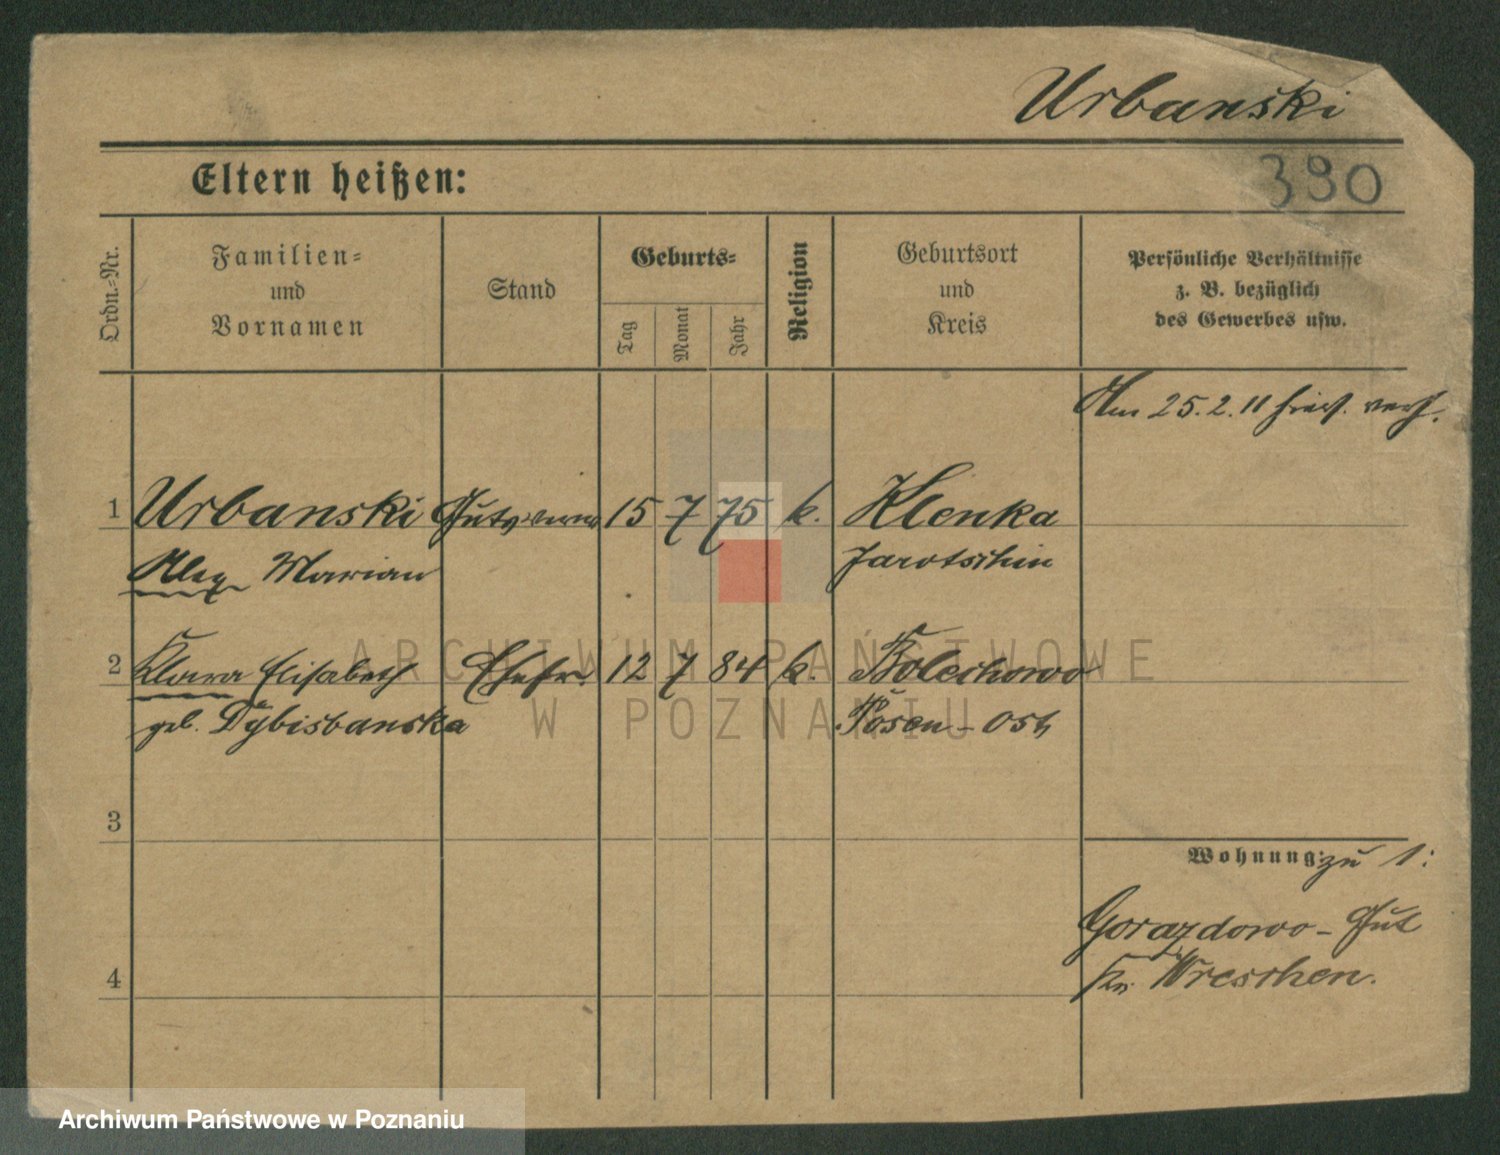 Urbanski
Eltern heißen:
390
Ordn.-Nr.
Familien-
und
Vornamen
Stand
Geburts-
Tag
Monat
Jahr
Religion
Geburtsort
und
Kreis
Persönliche Verhältnisse
z. B. bezüglich
des Gewerbes usw.
Am 25.2.11 verh.
1 Urbanski 15 7 75 k. Klenka
Alex Marian Jarotschin
2 Klara Elisabeth Ehefr. 12 7 84 k. Bolechowo
geb. Dybisbanska Posen-Ost
3
Wohnung: zu 1:
Gorazdowo-Gut
4 Kr. Wreschen.
ARCHIWUM PAŃSTWOWE
W POZNANIU
Archiwum Państwowe w Poznaniu